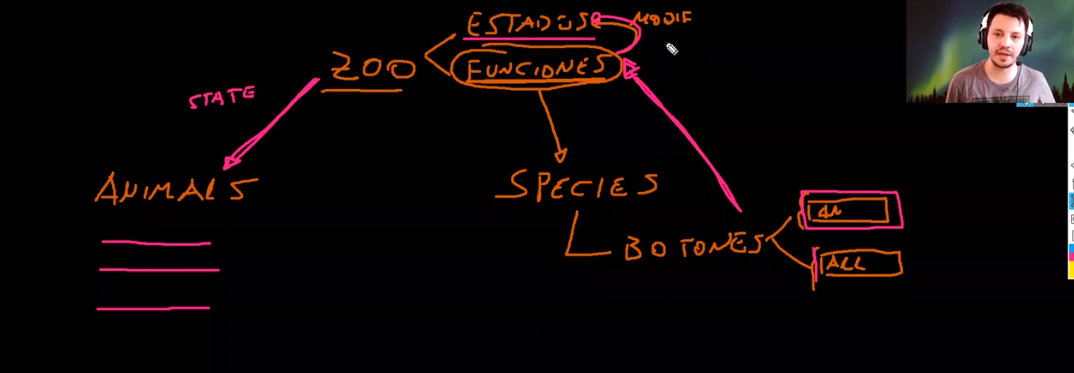 ESTADOS
MODIF
ZOO
FUNCIONES
STATE
ANIMALS
SPECIES
BOTONES
ALL